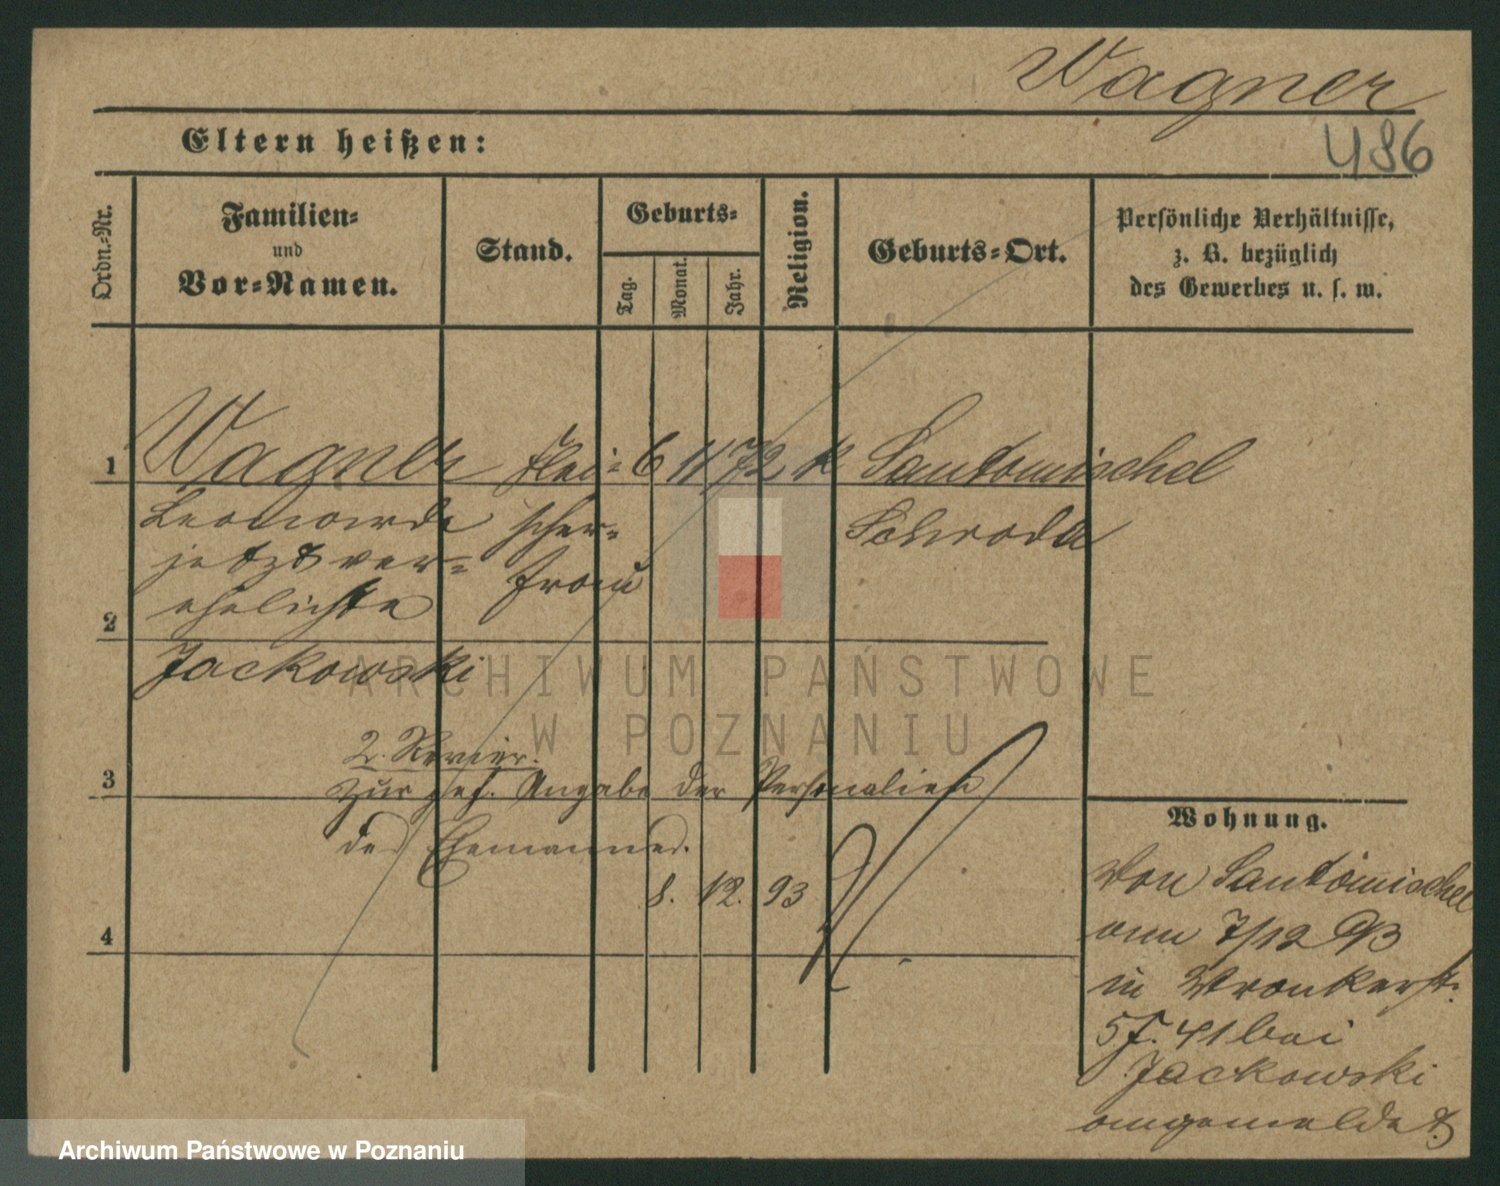 Wagner
486
Eltern heißen:
Ordn.-Nr.
Familien-
und
Vor-Namen.
Stand.
Geburts-
Tag.
Monat.
Jahr.
Religion.
Geburts-Ort.
Persönliche Verhältnisse,
z. B. bezüglich
des Gewerbes u. s. w.
1 Wagner Flei- 6 11 72 k Santomischel
Leonarda scher- Schroda
jetzt ver- frau
2 ehelichte
Jackowski
2. Revier.
3 zur gef. Angabe der Personalien
des Ehemannes.
8. 12. 93
4
Wohnung.
Von Santomischel
am 7/12 93
in Wronkerst.
5 I. 41 bei
Jackowski
angemeldet.
ARCHIWUM PAŃSTWOWE
W POZNANIU
Archiwum Państwowe w Poznaniu